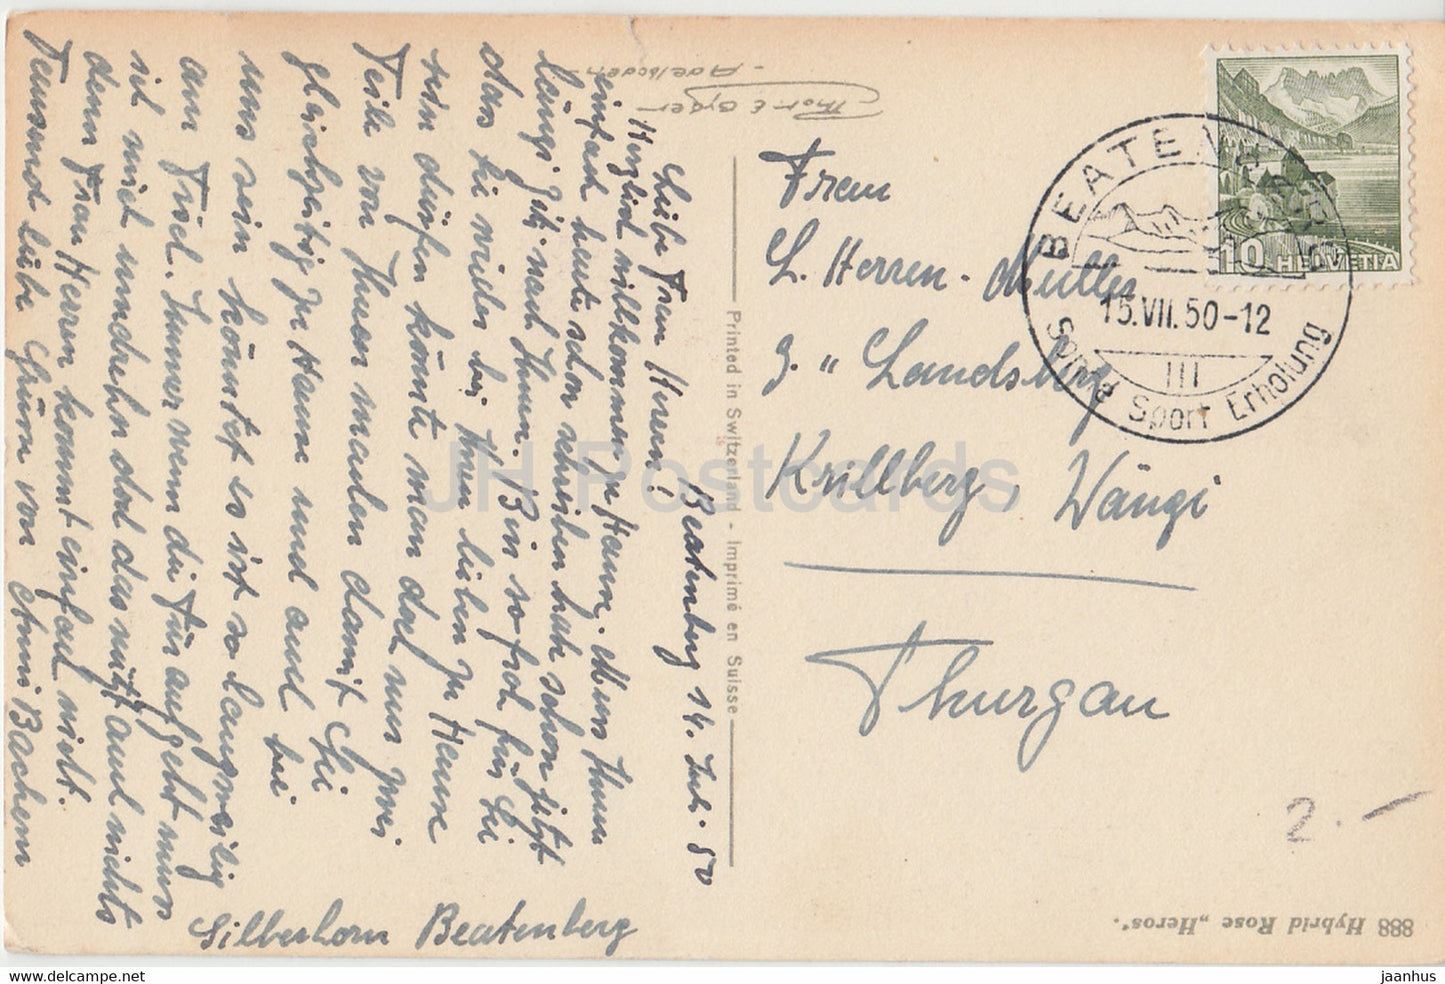 Beatenberg 14. Juli. 50
Liebe Frau Herren!
Herzlich willkommen zu Hause. Muss Ihnen
einfach heute schon schreiben hab schon jetzt
längi Ziti nach Ihnen. Bin so froh für Sie
das sie wieder bei Ihren lieben zu Hause
sein dürfen könnte man doch nur zwei
Teile von Ihnen machen damit Sie
gleichzeitig zu Hause und auch bei
uns sein könnten es ist so langweilig
am Tisch. Immer wenn die Tür aufgeht muss
ich mich umdrehn doch das nützt auch nichts
denn Frau Herren kommt einfach nicht.
Tausend liebe Grüsse von Anni Bachem
Silberhorn Beatenberg
Thor E Gyger
- Adelboden
Printed in Switzerland - Imprimé en Suisse
BEATENBERG
15.VII.50-12
III
Sonne Sport Erholung
10 HELVETIA
Frau
L. Herren-Müller
z. "Landsberg
Krillberg, Wängi
Thurgau
2.-
888 Hybrid Rose „Heros".
JH Postcards
jaanhus